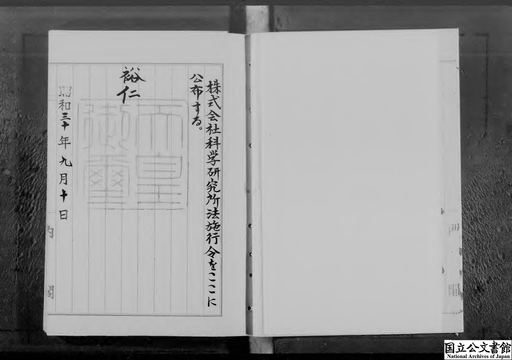 株式会社科学研究所法施行令をここに
公布する。
裕仁
天皇
御璽
昭和三十年九月十日
国立公文書館
National Archives of Japan